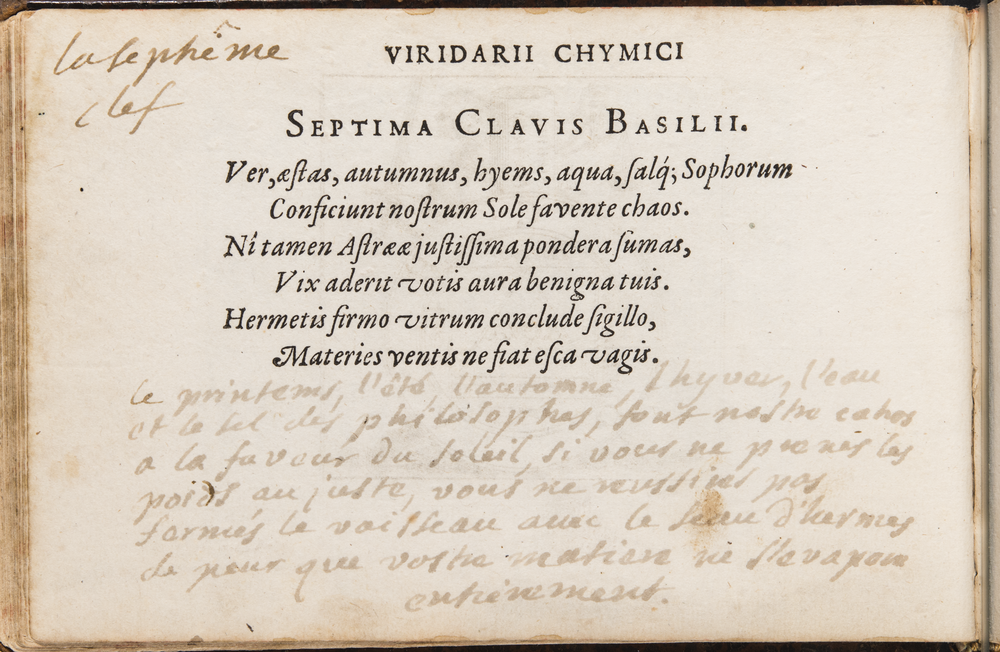 la sephême
clef
VIRIDARII CHYMICI
SEPTIMA CLAVIS BASILII.
Ver, æſtas, autumnus, hyems, aqua, ſalq́; Sophorum
Conficiunt noſtrum Sole favente chaos.
Nî tamen Aſtrææ juſtiſſima pondera ſumas,
Vix aderit votis aura benigna tuis.
Hermetis firmo vitrum conclude ſigillo,
Materies ventis ne fiat eſca vagis.
le printems, l'été, l'automne, l'hyver, l'eau
et le sel des philosophes, font nostre cahos
a la faveur du soleil, si vous ne prenés les
poids au juste, vous ne reussirés pas
fermés le vaisseau avec le seau d'hermes
de peur que vostre matiere ne s'evapore
entierement.